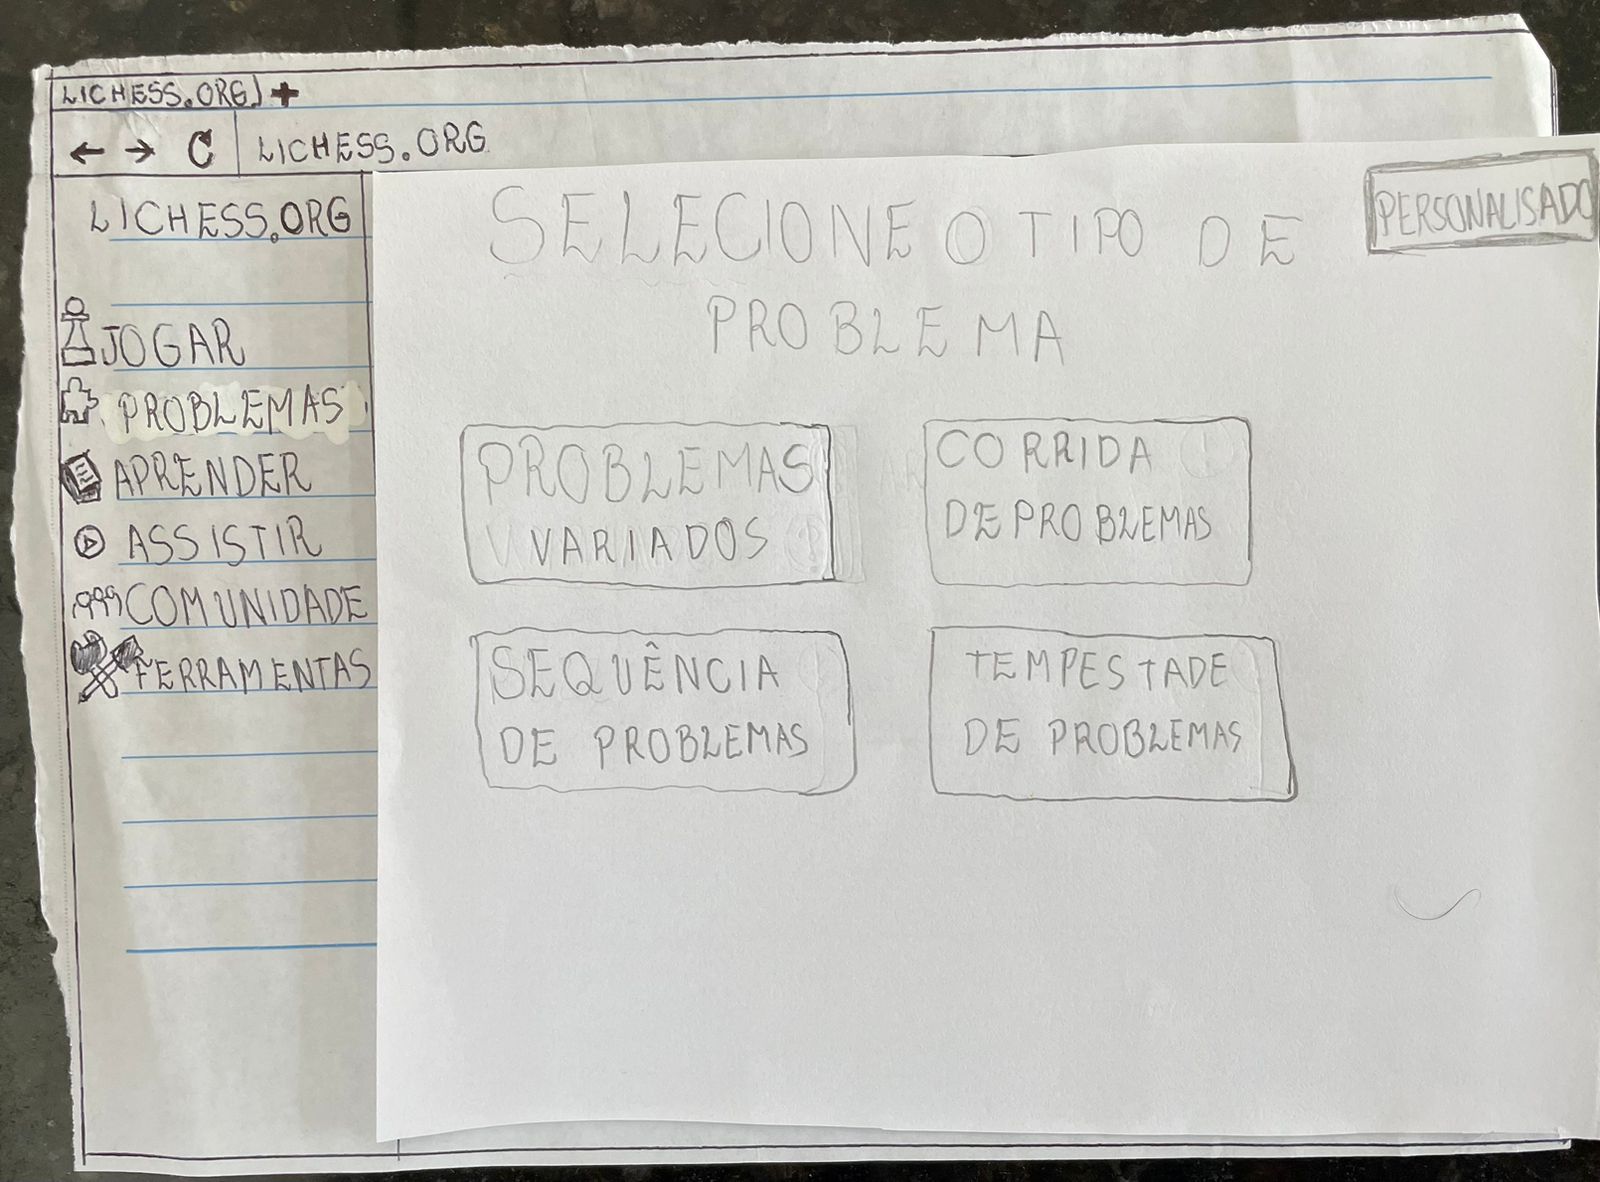 LICHESS.ORG +
← → C LICHESS.ORG
LICHESS.ORG
JOGAR
PROBLEMAS
APRENDER
ASSISTIR
COMUNIDADE
FERRAMENTAS
SELECIONE O TIPO DE
PROBLEMA
PERSONALISADO
PROBLEMAS
VARIADOS
CORRIDA
DE PROBLEMAS
SEQUÊNCIA
DE PROBLEMAS
TEMPESTADE
DE PROBLEMAS